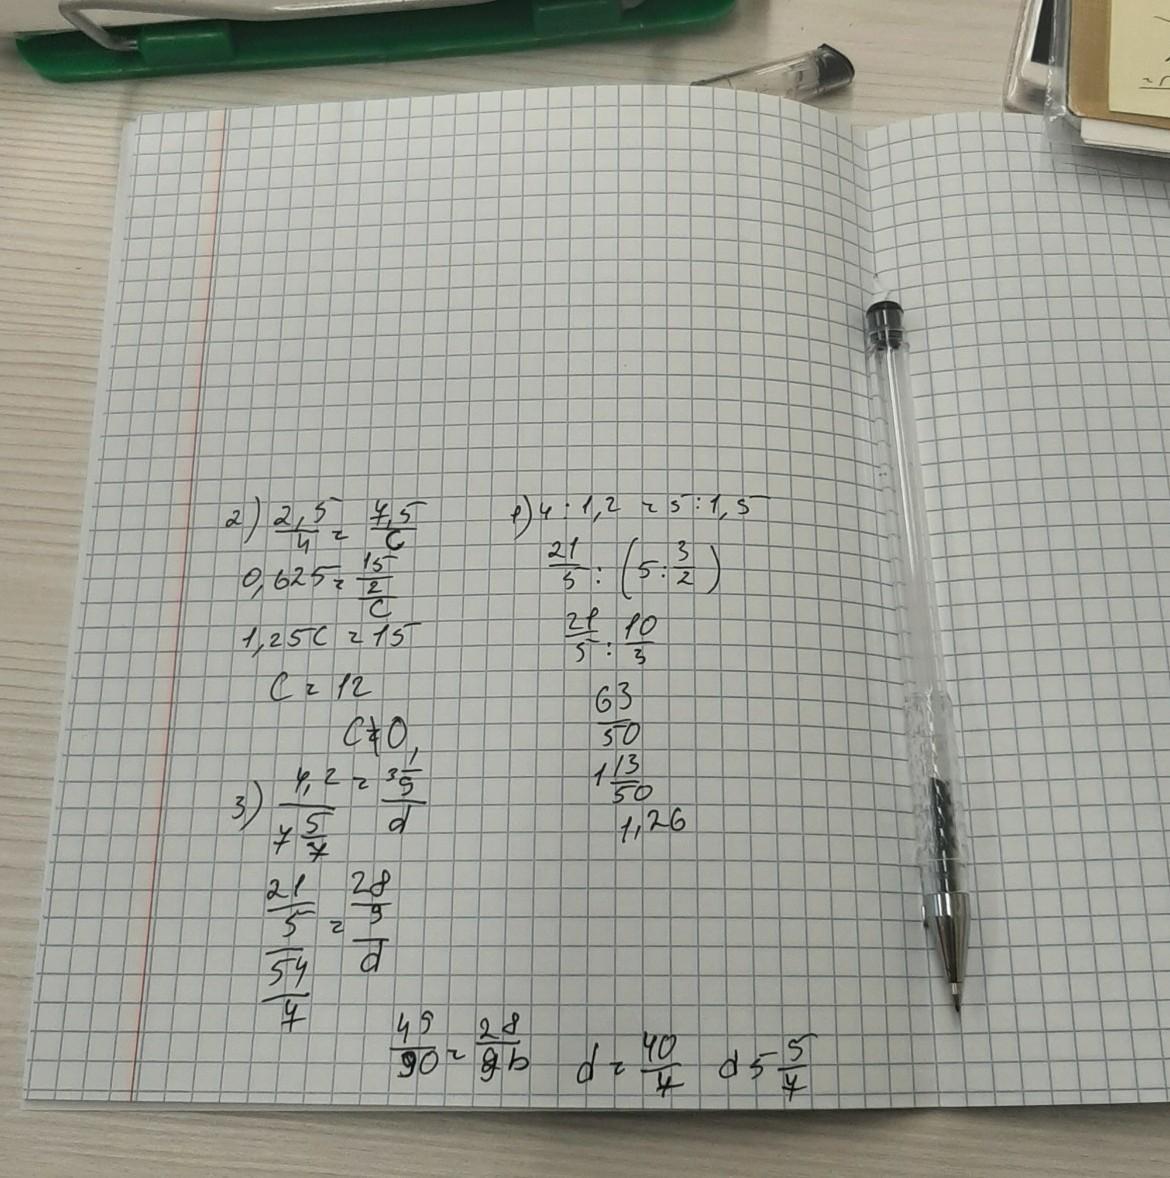 2) 2,5/4 = 7,5/C
0,625 = 15/2/C
1,25C = 15
C = 12
C ≠ 0
3) 4,2/7 5/7 = 3 1/9/d
21/5/54/7 = 28/9/d
49/90 = 28/9b d = 40/7 d 5 5/7
1) 4 : 1,2 = 5 : 1,5
21/5 : (5 : 3/2)
21/5 : 10/3
63/50
1 13/50
1,26